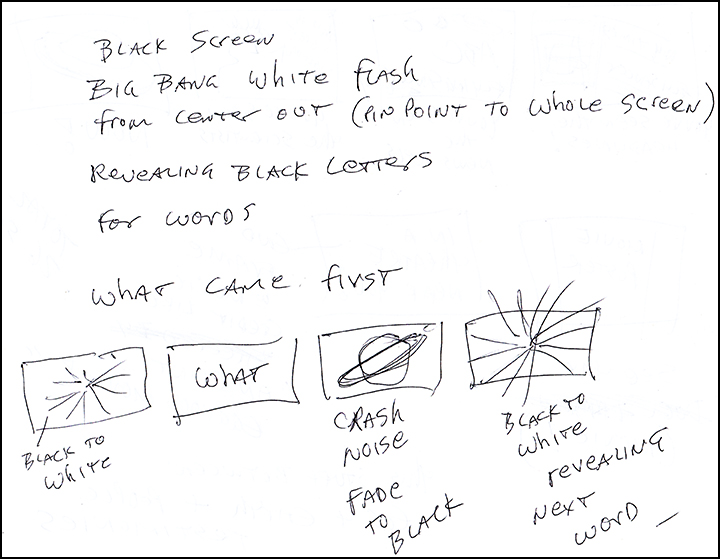 BLACK SCREEN
BIG BANG WHITE FLASH
FROM CENTER OUT (PIN POINT TO WHOLE SCREEN)
REVEALING BLACK LETTERS
FOR WORDS
WHAT CAME FIRST
BLACK TO
WHITE
WHAT
CRASH
NOISE
FADE
TO
BLACK
BLACK TO
WHITE
REVEALING
NEXT
WORD